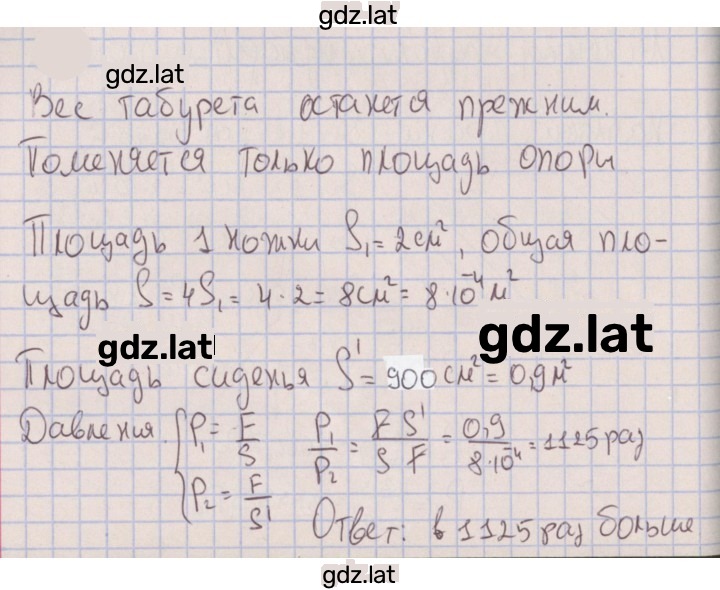 gdz.lat
gdz.lat
Вес табурета останется прежним.
Поменяется только площадь опоры
Площадь 1 ножки S₁ = 2см², общая пло-
щадь S = 4S₁ = 4·2 = 8см² = 8·10⁻⁴м²
gdz.lat
gdz.lat
Площадь сиденья S' = 900см² = 0,9м²
Давления { P₁ = F/S P₁/P₂ = F S'/S F = 0,9/8·10⁻⁴ = 1125 раз
P₂ = F/S'
Ответ: в 1125 раз больше
gdz.lat